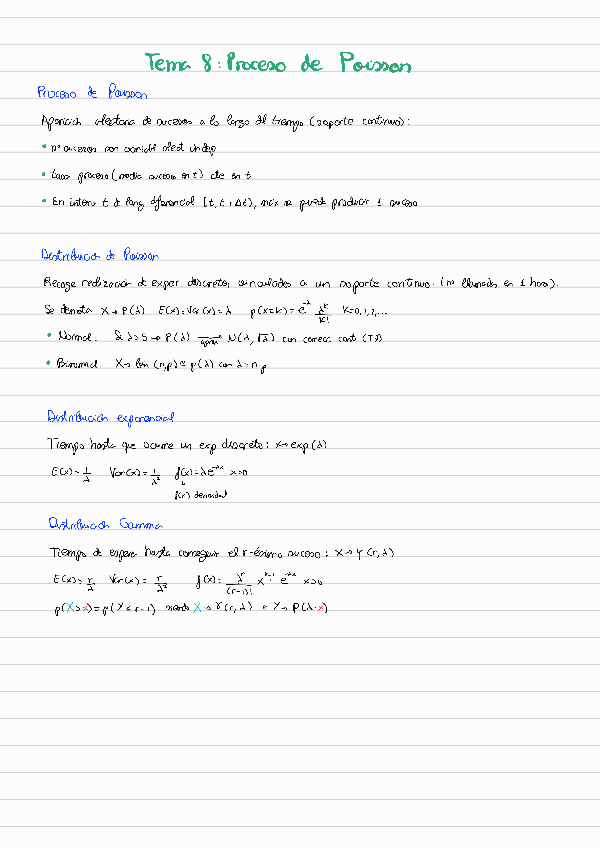 Tema 8: Proceso de Poisson
Proceso de Poisson
Aparición aleatoria de sucesos a lo largo del tiempo (soporte continuo):
• nº sucesos son variabl aleat indep
• tasa proceso (media suceso en t) cte en t
• En interv t d long diferencial [t, t+Δt), máx se puede producir 1 suceso
Distribución de Poisson
Recoge realización de exper discretos vinculados a un soporte continuo. (nº llamadas en 1 hora).
Se denota X → P(λ) E(x)=Var(x)=λ p(x=k)=e^-λ λ^k/k! k=0,1,2,...
• Normal. Si λ>5 → P(λ) →aprox N(λ, √λ) con correcc cont (TJ)
• Binomial. X → bin (n,p) ≈ p(λ) con λ=n·p
Distribución exponencial
Tiempo hasta que ocurre un exp discreto: x → exp(λ)
E(x)=1/λ Var(x)=1/λ² f(x)=λe^-λx x>0
f(x) densidad
Distribución Gamma
Tiempo de espera hasta conseguir el r-ésimo suceso: X → γ(r,λ)
E(x)=r/λ Var(x)=r/λ² f(x)=λ^r/(r-1)! x^r-1 e^-λx x>0
p(X>x)=p(Y≤r-1) siendo X → γ(r,λ) e Y → P(λ·x)